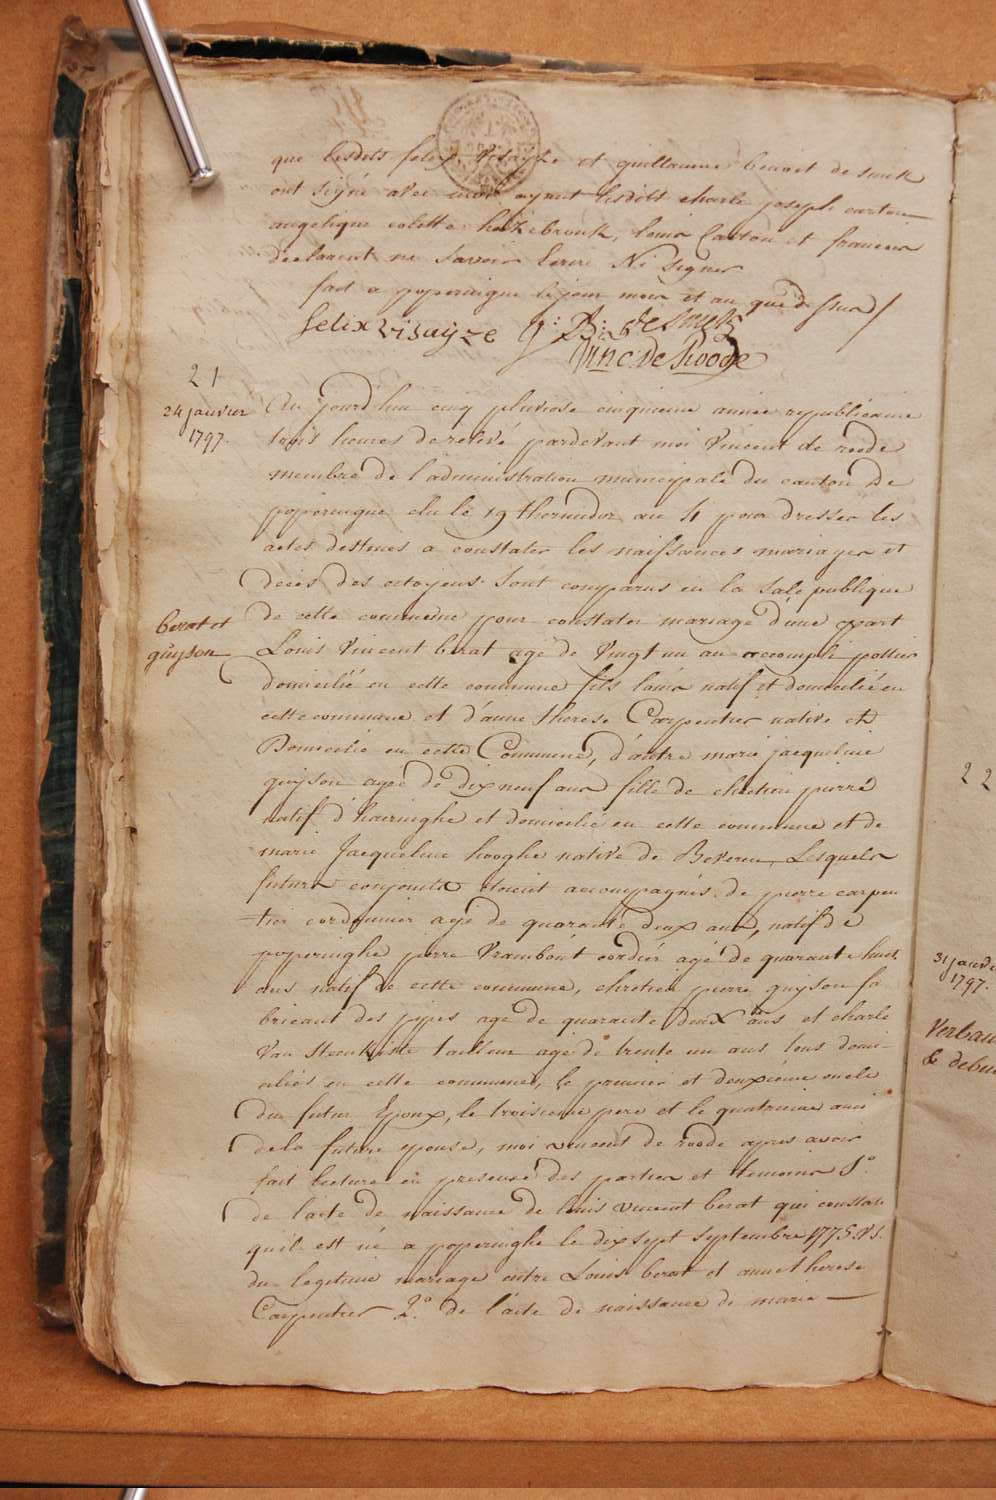 que lesdits felix Visayze et guillaume benoit de smek
ont signé avec moi ayant lesdits charle joseph carton
angelique colette hazebrouk, louis Carton et francois
declarent ne savoir Ecrire Ni signer
fait a poperingue le jour mois et an que dessus
felix visayze g: B: de smek
Vinc: de Roode
21
24 janvier
1797.
Au jourd'hui cinq pluviose cinquieme année republicaine
trois heures de relevé pardevant moi Vincent de roode
membre de l'administration municipale du canton de
poperingue elu le 19 thermidor an 4 pour dresser les
actes destinés a constater les naissances mariages et
deces des citoyens sont comparus en la sale publique
de cette commune pour constater mariage d'une part
berat et
guyson
Louis Vincent berat agé de vingt un an accompli pottier
domicilié en cette commune fils louis natif et domicilié en
cette commune et d'anne therese Carpentier native et
Domicilié en cette Commune, d'autre marie jacqueline
guyson agée de dix neuf ans fille de chretien pierre
natif d'hairinghe et domicilié en cette commune et de
marie Jacqueline hooghe native de Beveren, Lesquels
futurs conjoints etoient accompagnés de pierre carpen
tier cordonnier agé de quarante deux ans, natif de
poperinghe pierre Vrambout cordier agé de quarante huit
ans natif de cette commune, chretien pierre guyson fa
bricant des pipes age de quarante deux ans et charle
Van steenkiste tailleur age de trente un ans tous domi-
ciliés en cette commune, le premier et deuxieme oncle
du futur Epoux, le troisieme pere et le quatrieme ami
de la future epouse, moi vincent de roode apres avoir
fait lecture en presence des parties et temoins 1°.
de l'acte de naissance de louis vincent berat qui constate
quil est né a poperinghe le dix sept septembre 1775 V.S.
du legitime mariage entre Louis berat et anne therese
Carpentier 2.° de l'acte de naissance de marie
22
31 janvie
1797.
Verbau
& debu